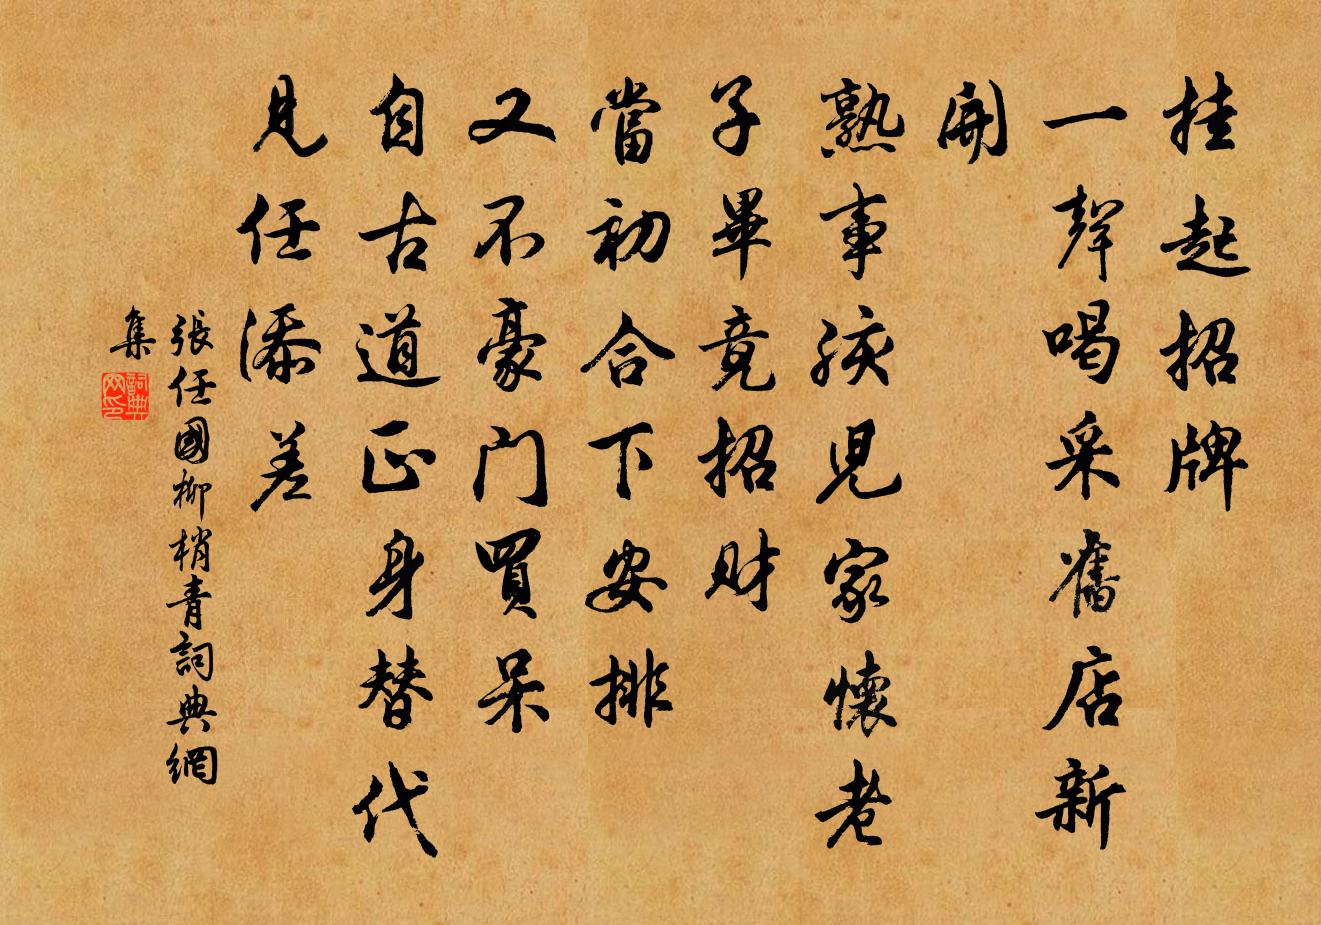 挂起招牌
一聲喝采舊店新
開
熟事孩兒家懷老
子畢竟招財
當初合下安排
又不豪门買呆
自古道正身替代
見任添差
張任國柳梢青詞典網
集
詞典网印